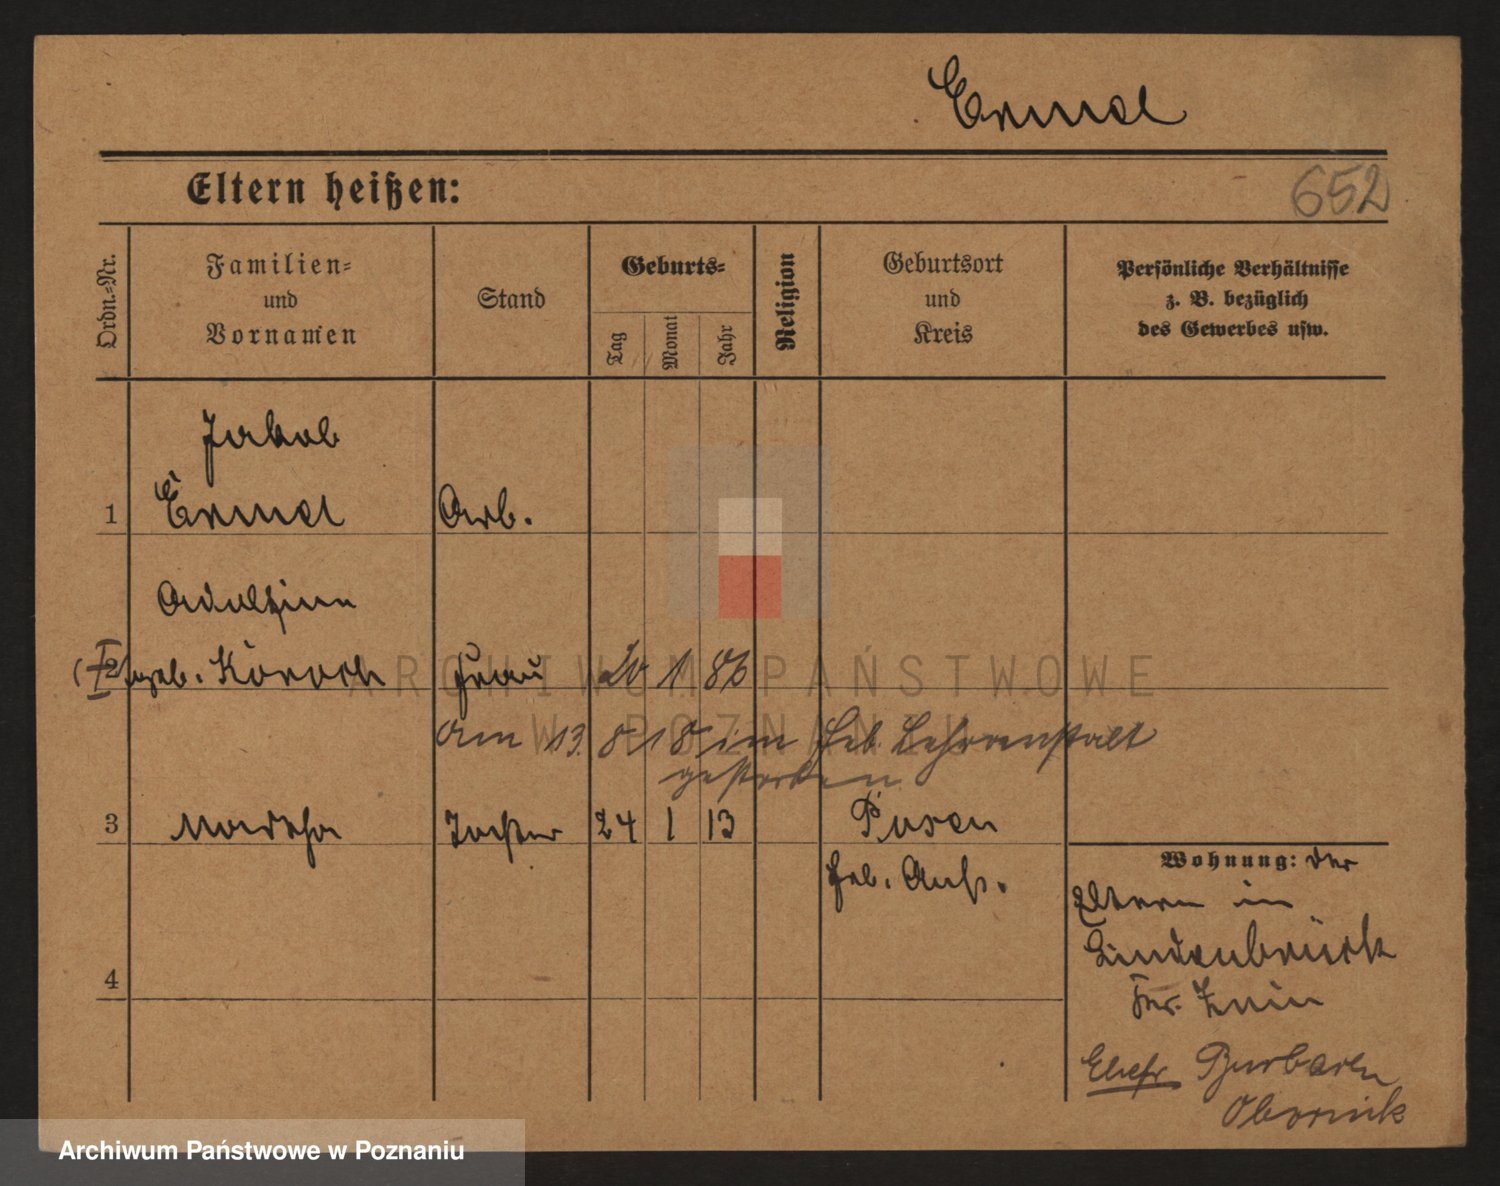 Ermel
Eltern heißen:
652
Ordn.-Nr.
Familien-
und
Vornamen
Stand
Geburts-
Tag
Monat
Jahr
Religion
Geburtsort
und
Kreis
Persönliche Verhältnisse
z. B. bezüglich
des Gewerbes usw.
Jakob
1 Ermel Arb.
geb. Frau 20 1 86
am 13. 8 18 im Heb. Lehranstalt
gestorben
3 Martha Tochter 24 1 13 Posen
Heb. Anst.
Wohnung: der
Eltern in
Lindenbrück
Kr. Znin
4
Ehefr
Obornik
ARCHIWUM PAŃSTWOWE
W POZNANIU
Archiwum Państwowe w Poznaniu